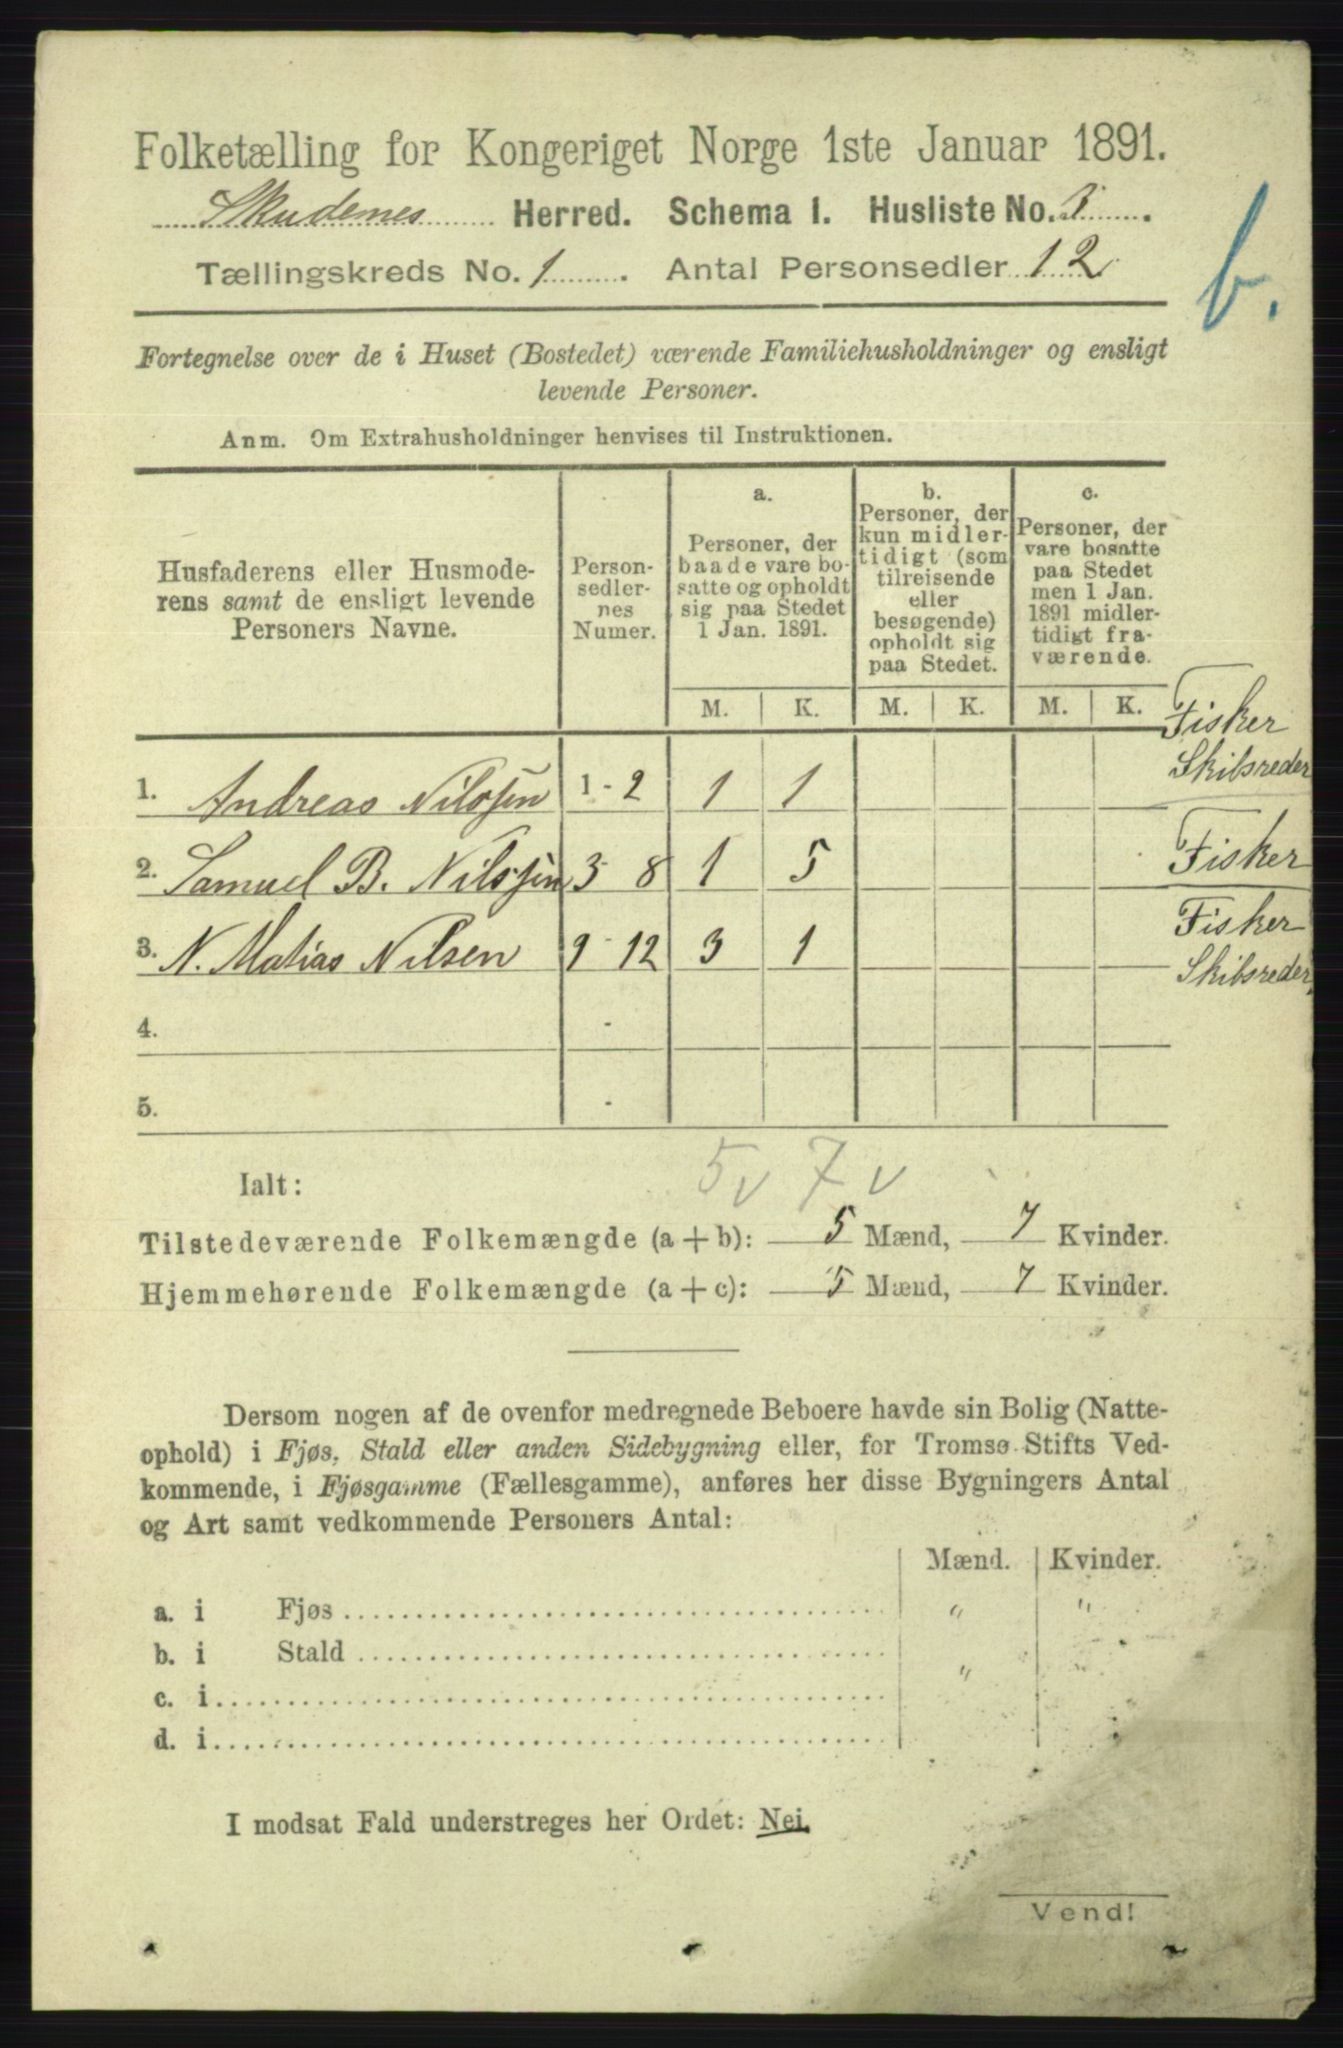 Folketælling for Kongeriget Norge 1ste Januar 1891.
Skudenes Herred. Schema 1. Husliste No. 3.
b.
Tællingskreds No. 1. Antal Personsedler 12
Fortegnelse over de i Huset (Bostedet) værende Familiehusholdninger og ensligt
levende Personer.
Anm. Om Extrahusholdninger henvises til Instruktionen.
Husfaderens eller Husmode-
rens samt de ensligt levende
Personers Navne.
Person-
sedler-
nes
Numer.
a.
Personer, der
baade vare bo-
satte og opholdt
sig paa Stedet
1 Jan. 1891.
b.
Personer, der
kun midler-
tidigt (som
tilreisende
eller
besøgende)
opholdt sig
paa Stedet.
c.
Personer, der
vare bosatte
paa Stedet
men 1 Jan.
1891 midler-
tidigt fra-
værende.
M. K. M. K. M. K.
1. Andreas Nilssen 1-2 1 1 Fisker
Skibsreder
2. Samuel B. Nilssen 3-8 1 5 Fisker
3. N. Matias Nilsen 9-12 3 1 Fisker
Skibsreder
4. -
5. -
5 v 7 v
Ialt:
Tilstedeværende Folkemængde (a + b): 5 Mænd, 7 Kvinder.
Hjemmehørende Folkemængde (a + c): 5 Mænd, 7 Kvinder.
Dersom nogen af de ovenfor medregnede Beboere havde sin Bolig (Natte-
ophold) i Fjøs, Stald eller anden Sidebygning eller, for Tromsø Stifts Ved-
kommende, i Fjøsgamme (Fællesgamme), anføres her disse Bygningers Antal
og Art samt vedkommende Personers Antal:
Mænd. Kvinder.
a. i Fjøs " "
b. i Stald "
c. i
d. i
I modsat Fald understreges her Ordet: Nei.
Vend!